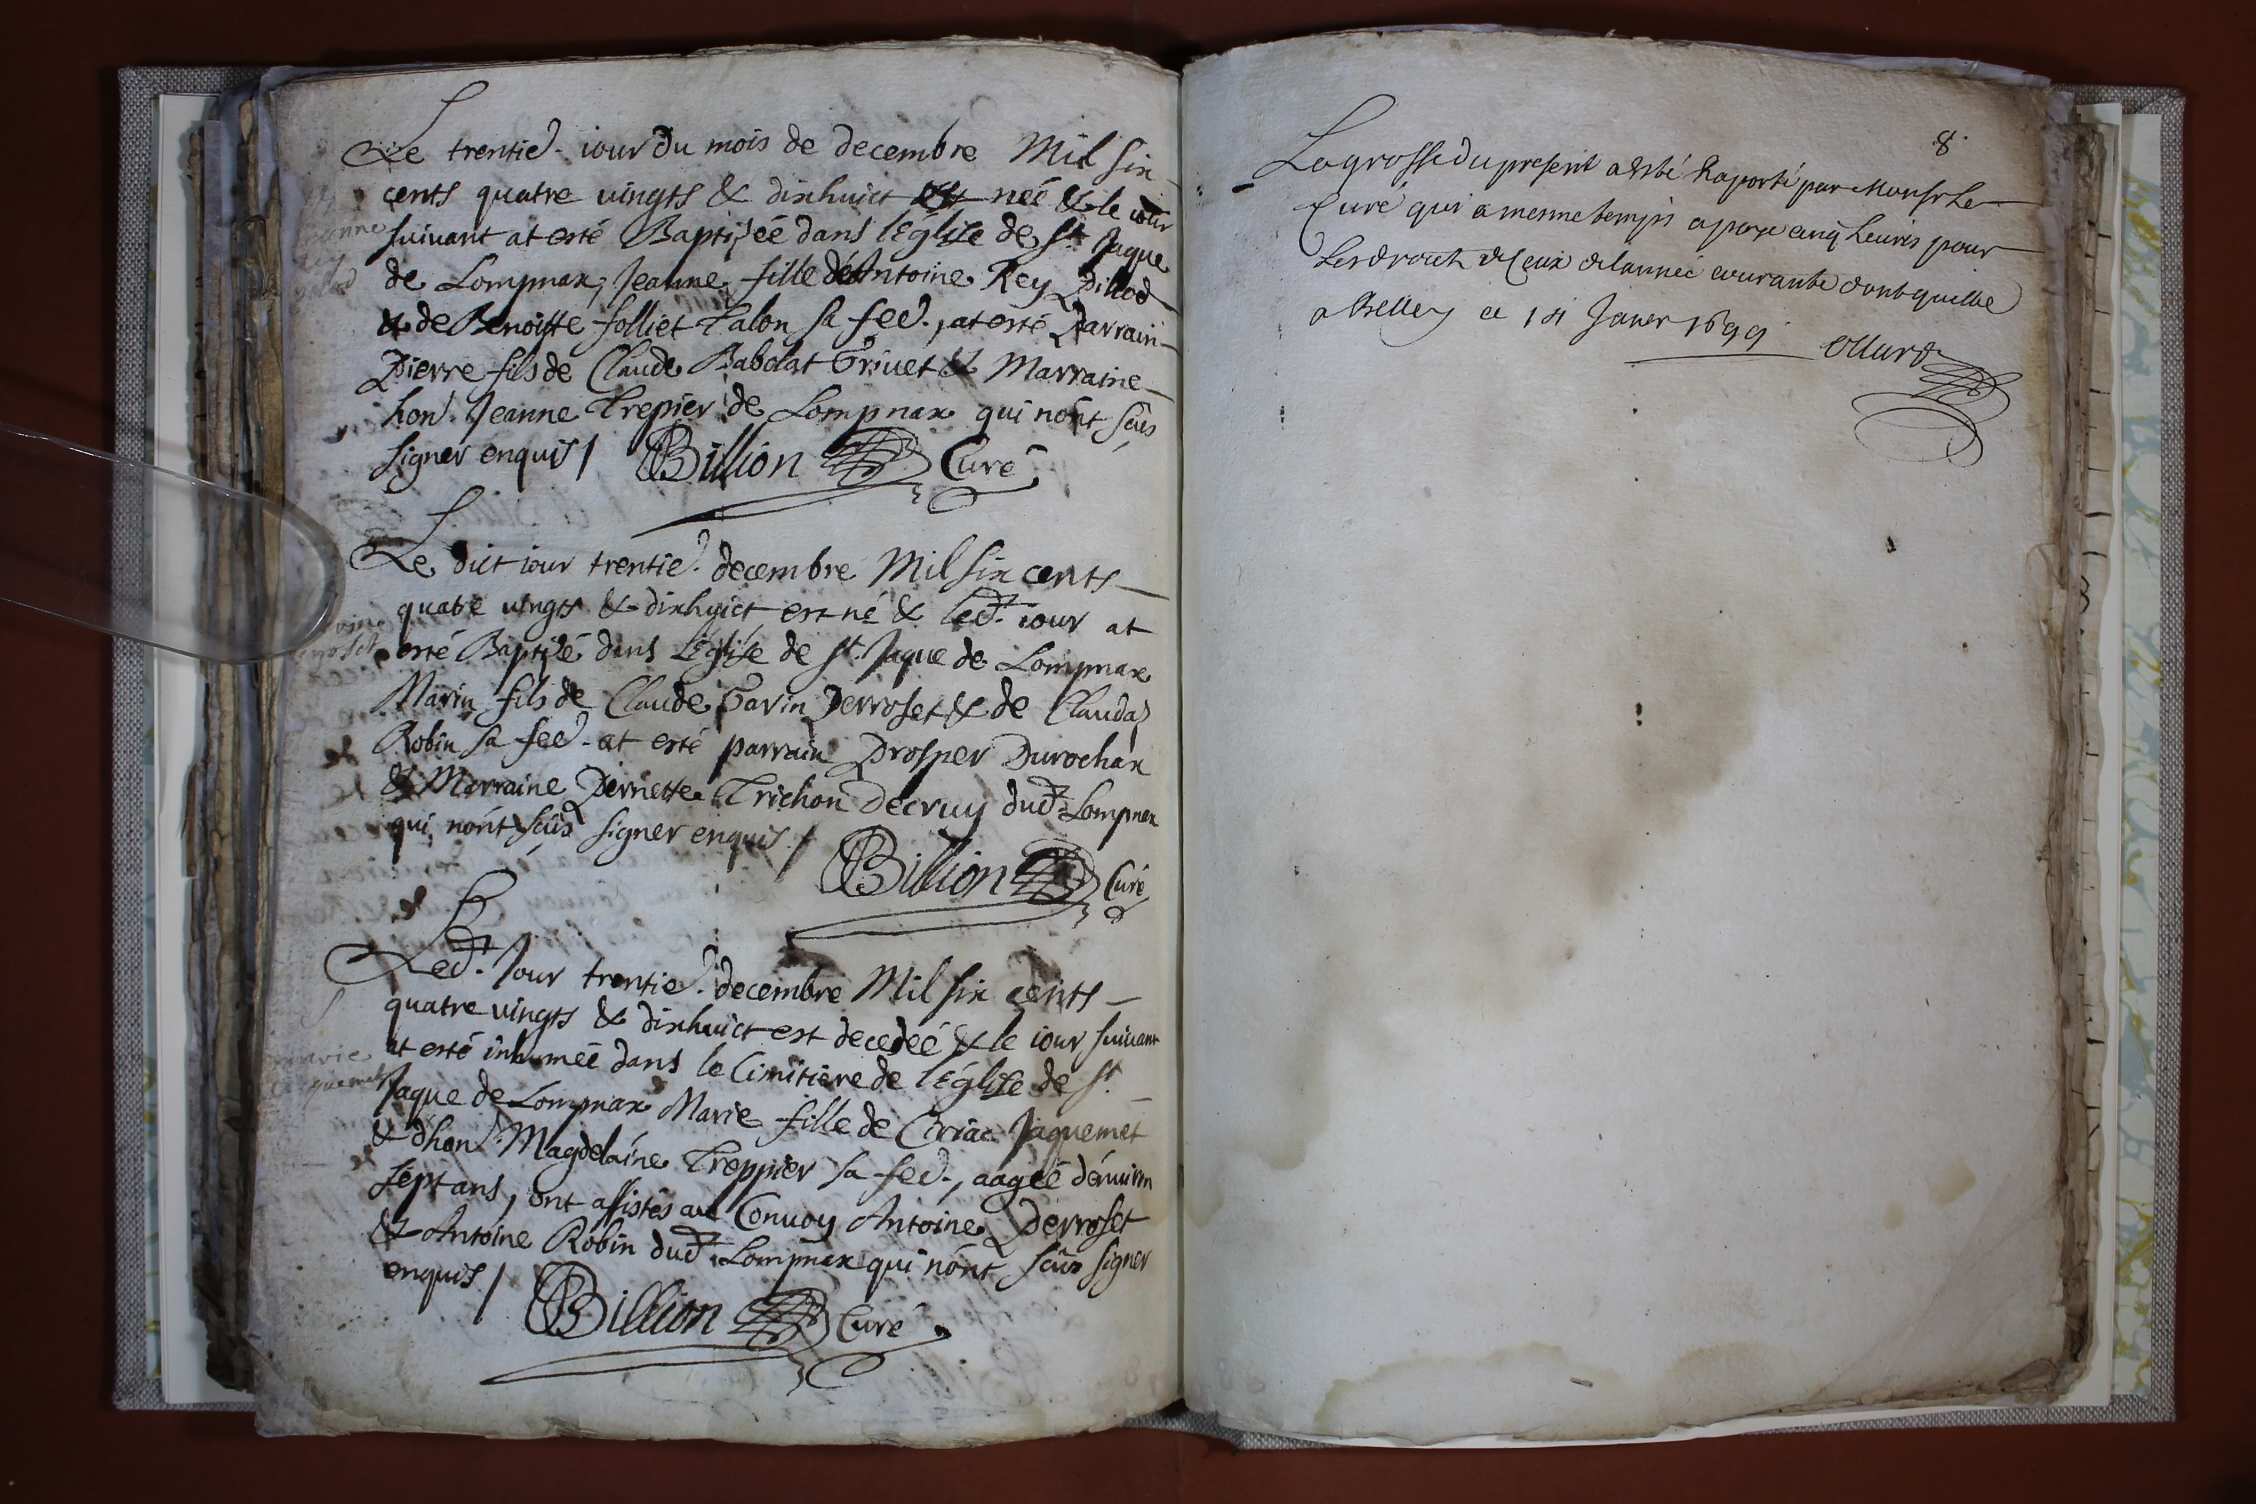 Le trentie. iour Du mois de decembre Mil six
cents quatre vingts & dixhuict est neé & le iour
suivant at esté Baptiseé dans l'Église de St. Jaque
de Lompnax, Jeanne fille d'Antoine Rey Pillod
& de Benoiste folliet Talon sa fed., at esté Parrain
Pierre fils de Claude Babolat Grivet & Marraine
hon. Jeanne Trepier de Lompnax qui nónt sçûs
signer enquis / Billion Curé
Le dict iour trentie. decembre Mil six cents
quatre vingts & dixhuict est né & led. iour at
esté Baptisé dans l'Église de St. Jaque de Lompnax
Marin fils de Claude Gavin Perroset & de Clauda
Robin sa fed. at esté parrain Prosper Durochax
& Marraine Pernette Trichon Decruy dud. Lompnax
qui nónt sçûs signer enquis. / Billion Curé
Led. Jour trentie. decembre Mil six cents
quatre vingts & dixhuict est decedeé & le iour suivant
marie at esté inhumeé dans le Cimitiere de l'Église de St.
Jaque de Lompnax Marie fille de Ciriac Jaquemet
& d'hon. Magdelaine Treppier sa fed., aageé d'enuiron
sept ans, ont assistés au Conuoy Antoine Perroset
& Antoine Robin dud. Lompnax qui nónt sçûs signer
enquis / Billion Curé
8.
La grosse du present a esté Raporté par Monsr Le
Curé qui a mesme temps a paye cinq Livres pour
Les droits de Ceux de lannee courante dont quitte
a Belley ce 14 Janer 1699